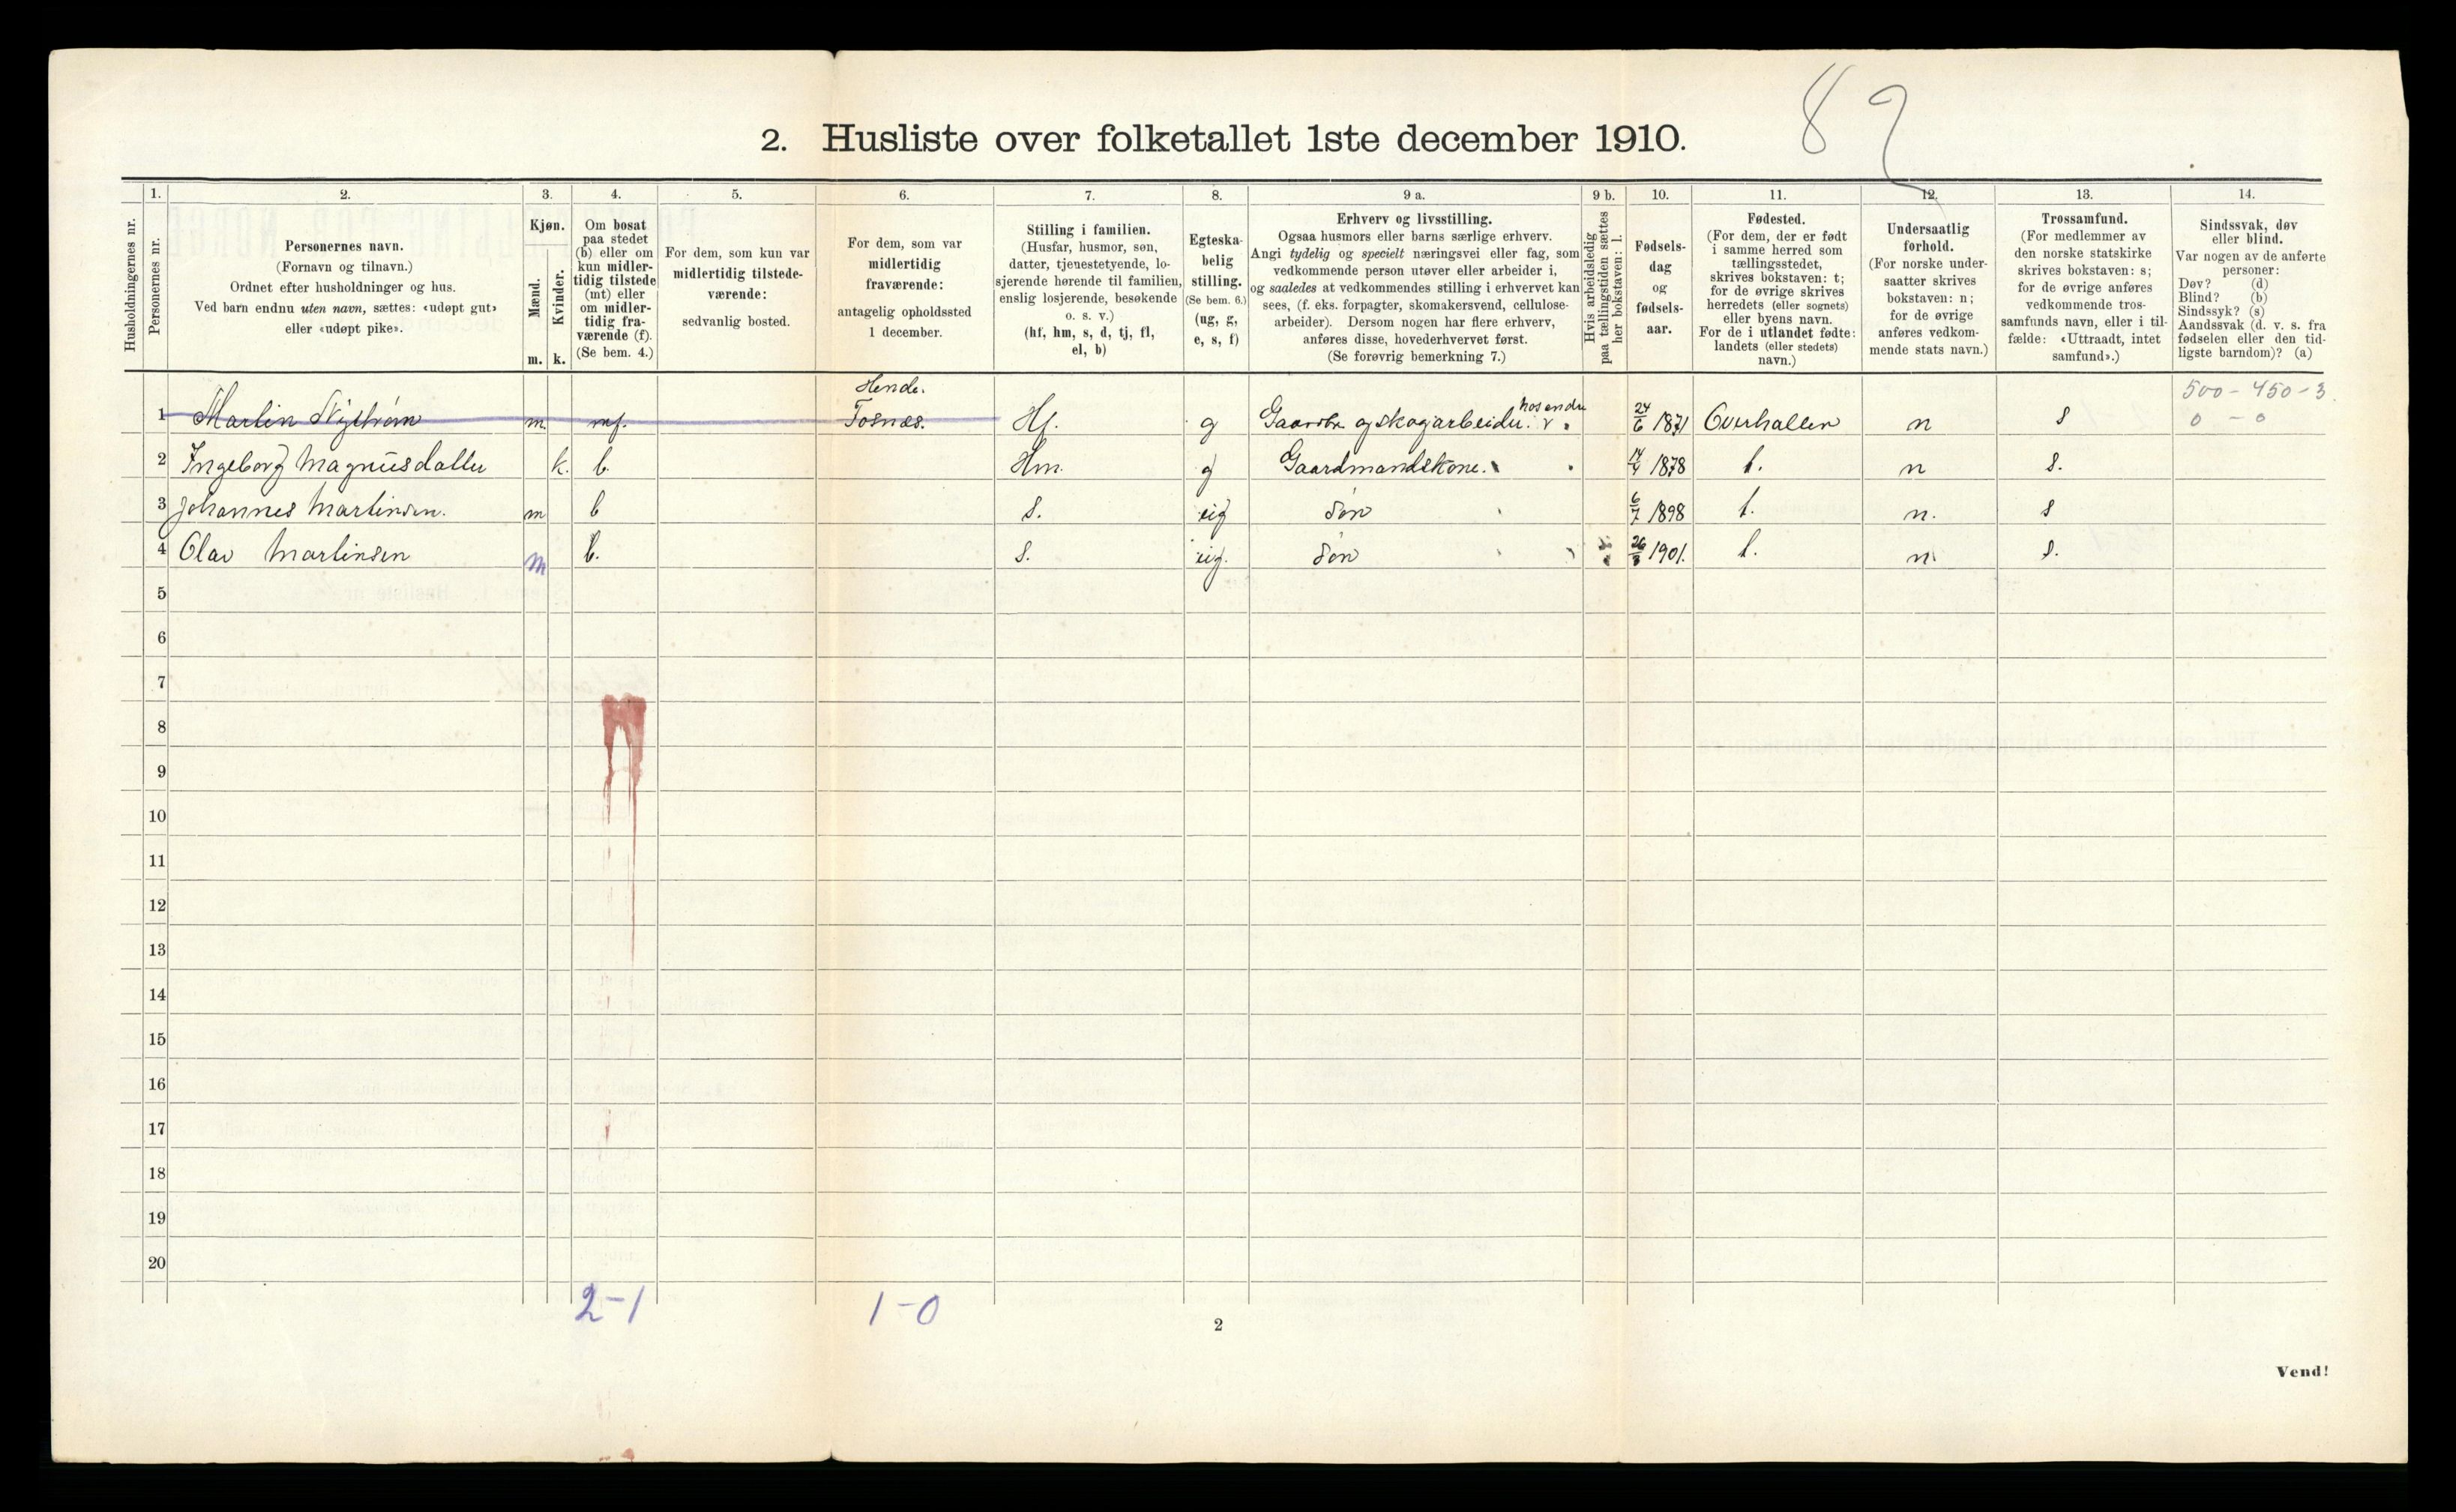 89
2. Husliste over folketallet 1ste december 1910.
Husholdningernes nr.
1.
Personernes nr.
2.
Personernes navn.
(Fornavn og tilnavn.)
Ordnet efter husholdninger og hus.
Ved barn endnu uten navn, sættes: «udøpt gut»
eller «udøpt pike».
3.
Kjøn.
Mænd.
Kvinder.
m. k.
4.
Om bosat
paa stedet
(b) eller om
kun midler-
tidig tilstede
(mt) eller
om midler-
tidig fra-
værende (f).
(Se bem. 4.)
5.
For dem, som kun var
midlertidig tilstede-
værende:
sedvanlig bosted.
6.
For dem, som var
midlertidig
fraværende:
antagelig opholdssted
1 december.
7.
Stilling i familien.
(Husfar, husmor, søn,
datter, tjenestetyende, lo-
sjerende hørende til familien,
enslig losjerende, besøkende
o. s. v.)
(hf, hm, s, d, tj, fl,
el, b)
8.
Egteska-
belig
stilling.
(Se bem. 6.)
(ug, g,
e, s, f)
9 a.
Erhverv og livsstilling.
Ogsaa husmors eller barns særlige erhverv.
Angi tydelig og specielt næringsvei eller fag, som
vedkommende person utøver eller arbeider i,
og saaledes at vedkommendes stilling i erhvervet kan
sees, (f. eks. forpagter, skomakersvend, cellulose-
arbeider). Dersom nogen har flere erhverv,
anføres disse, hovederhvervet først.
(Se forøvrig bemerkning 7.)
9 b.
Hvis arbeidsledig
paa tællingstiden sættes
her bokstaven: l.
10.
Fødsels-
dag
og
fødsels-
aar.
11.
Fødested.
(For dem, der er født
i samme herred som
tællingsstedet,
skrives bokstaven: t;
for de øvrige skrives
herredets (eller sognets)
eller byens navn.
For de i utlandet fødte:
landets (eller stedets)
navn.)
12.
Undersaatlig
forhold.
(For norske under-
saatter skrives
bokstaven: n;
for de øvrige
anføres vedkom-
mende stats navn.)
13.
Trossamfund.
(For medlemmer av
den norske statskirke
skrives bokstaven: s;
for de øvrige anføres
vedkommende tros-
samfunds navn, eller i til-
fælde: «Uttraadt, intet
samfund».)
14.
Sindssvak, døv
eller blind.
Var nogen av de anførte
personer:
Døv? (d)
Blind? (b)
Sindssyk? (s)
Aandssvak (d. v. s. fra
fødselen eller den tid-
ligste barndom)? (a)
500 - 450 - 3
0 - 0
Hende.
1 Martin m. mf. Fosnæs. Hf. g Gaardbr. og skogarbeider. hos andre 24/6 1871 Overhallen n s
2 Ingeborg Magnusdatter k. b. Hm. g Gaardmandskone. 1878 t. n s.
3 Johannes Martinsen. m b s. eig søn 6/7 1898 t. n. s
4 Olav Martinsen m b. s. eig. søn 1901. t. n. s.
5
6
7
8
9
10
11
12
13
14
15
16
17
18
19
20
2-1 1-0
2
Vend!